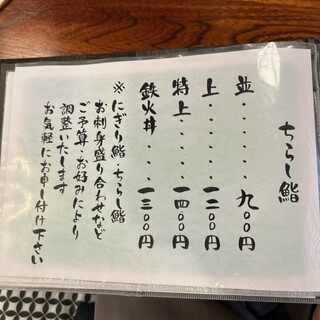 ちらし鮨
並・・・・九〇〇円
上・・・・一二〇〇円
特上・・・一四〇〇円
鉄火丼・・・一三〇〇円
※にぎり鮨・ちらし鮨
お刺身盛り合わせなど
ご予算・お好みにより
調整いたします
お気軽にお申し付け下さい